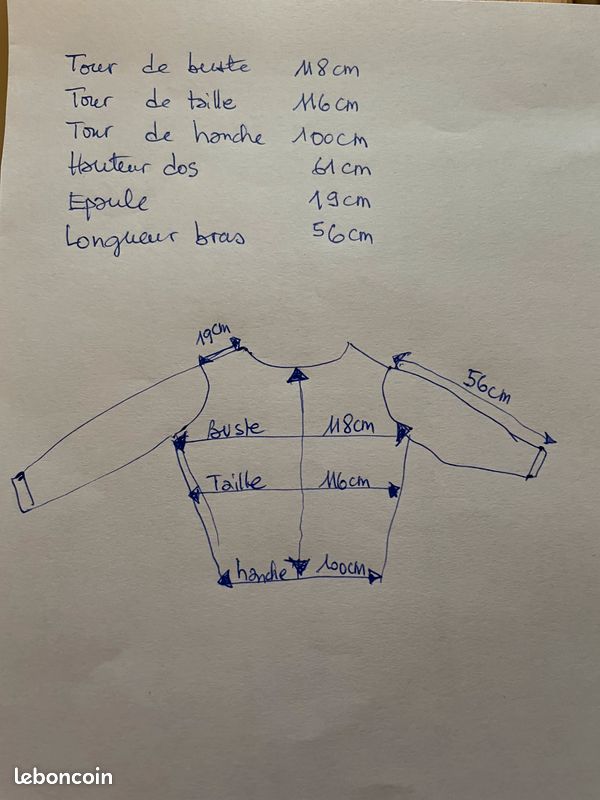 Tour de buste 118cm
Tour de taille 116cm
Tour de hanche 100cm
Hauteur dos 61cm
Epaule 19cm
Longueur bras 56cm
19cm
56cm
Buste 118cm
Taille 116cm
hanche 100cm
leboncoin